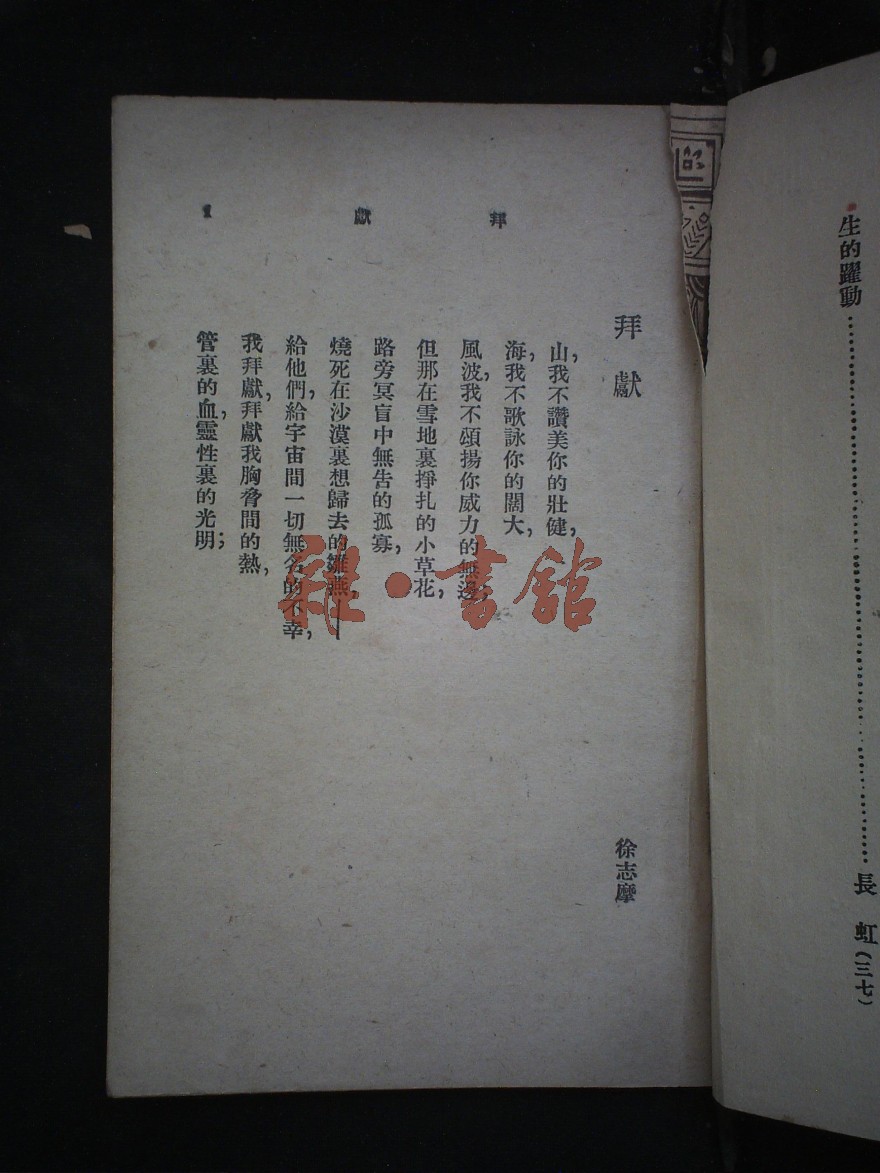 生的躍動……………………………………長虹(三七)
拜獻 1
拜獻 徐志摩
山,我不讚美你的壯健,
海,我不歌詠你的闊大,
風波,我不頌揚你威力的無邊;
但那在雪地裏掙扎的小草花,
路旁冥盲中無告的孤寡,
燒死在沙漠裏想歸去的雛燕,——
給他們,給宇宙間一切無名的不幸,
我拜獻,拜獻我胸脅間的熱,
管裏的血,靈性裏的光明;
雜·書館